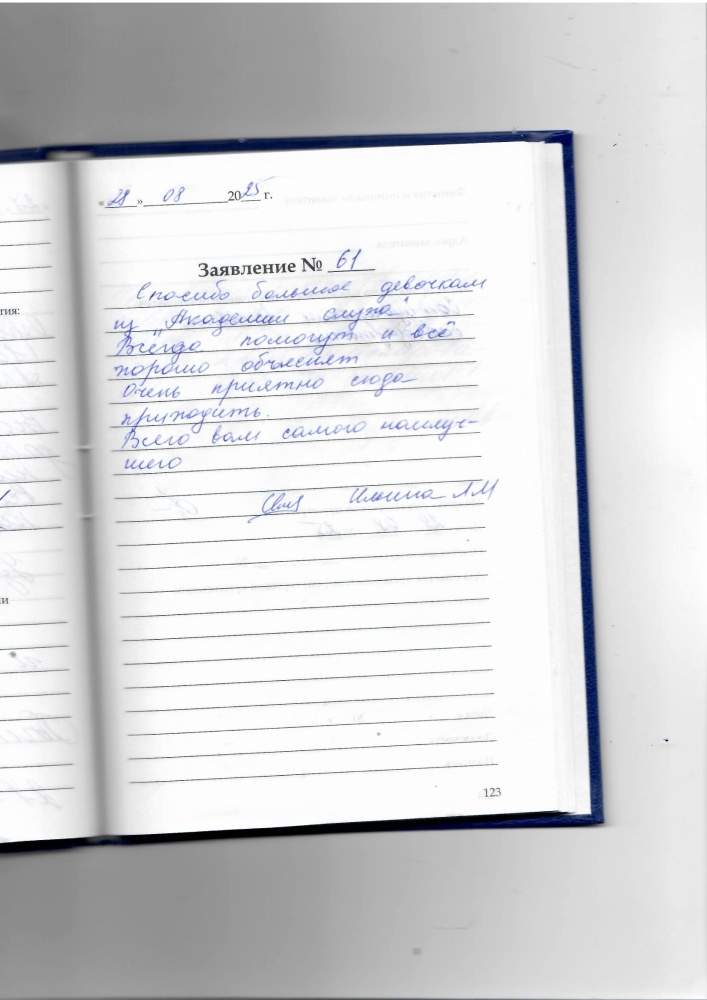 тия:
ии
«28» 08 2025 г.
Заявление № 61
Спасибо большое девочкам
из „Академии слуха"
Всегда помогут и всё
хорошо объяснят
Очень приятно сюда
приходить.
Всего вам самого наилуч-
шего
Ильина ЛМ
123